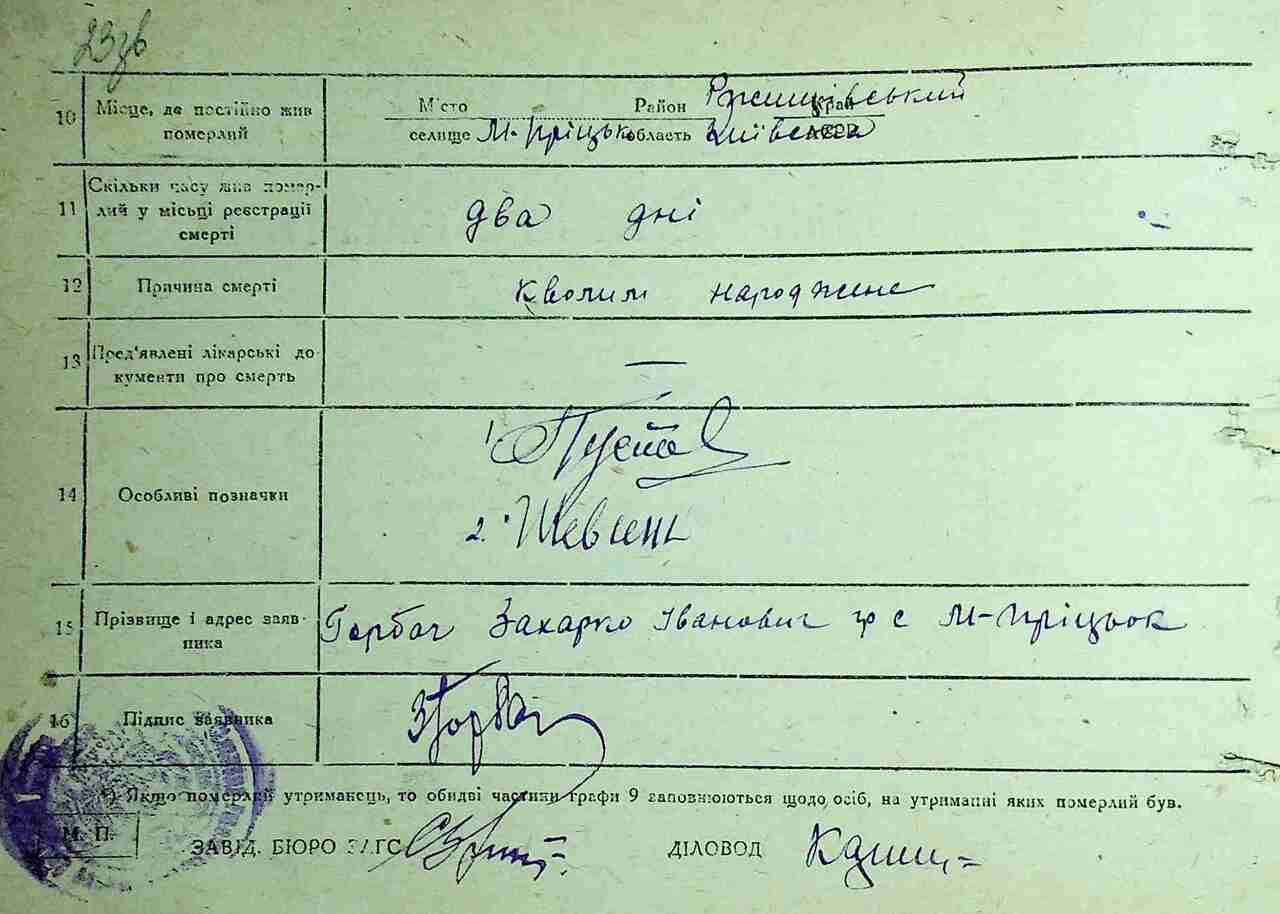 23зв
10 Місце, де постійно жив М'сто Район Ржищівський Край
померлий селище М-Пріцьк область Київська АССР
Скільки часу жив помер-
11 лий у місці реєстрації два дні
смерті
12 Причина смерті кволим народжене
13 Пред'явлені лікарські до- —
кументи про смерть
1
14 Особливі позначки
2. Шевчен
15 Прізвище і адрес заяв- Горбач Захарко Іванович гр с М-Пріцьок
ника
16 Підпис заявника ЗГорбач
*) Якщо померлий утриманець, то обидві частини графи 9 заповнюються щодо осіб, на утриманні яких померлий був.
М. П.
ЗАВІД. БЮРО ЗАГС ДІЛОВОД